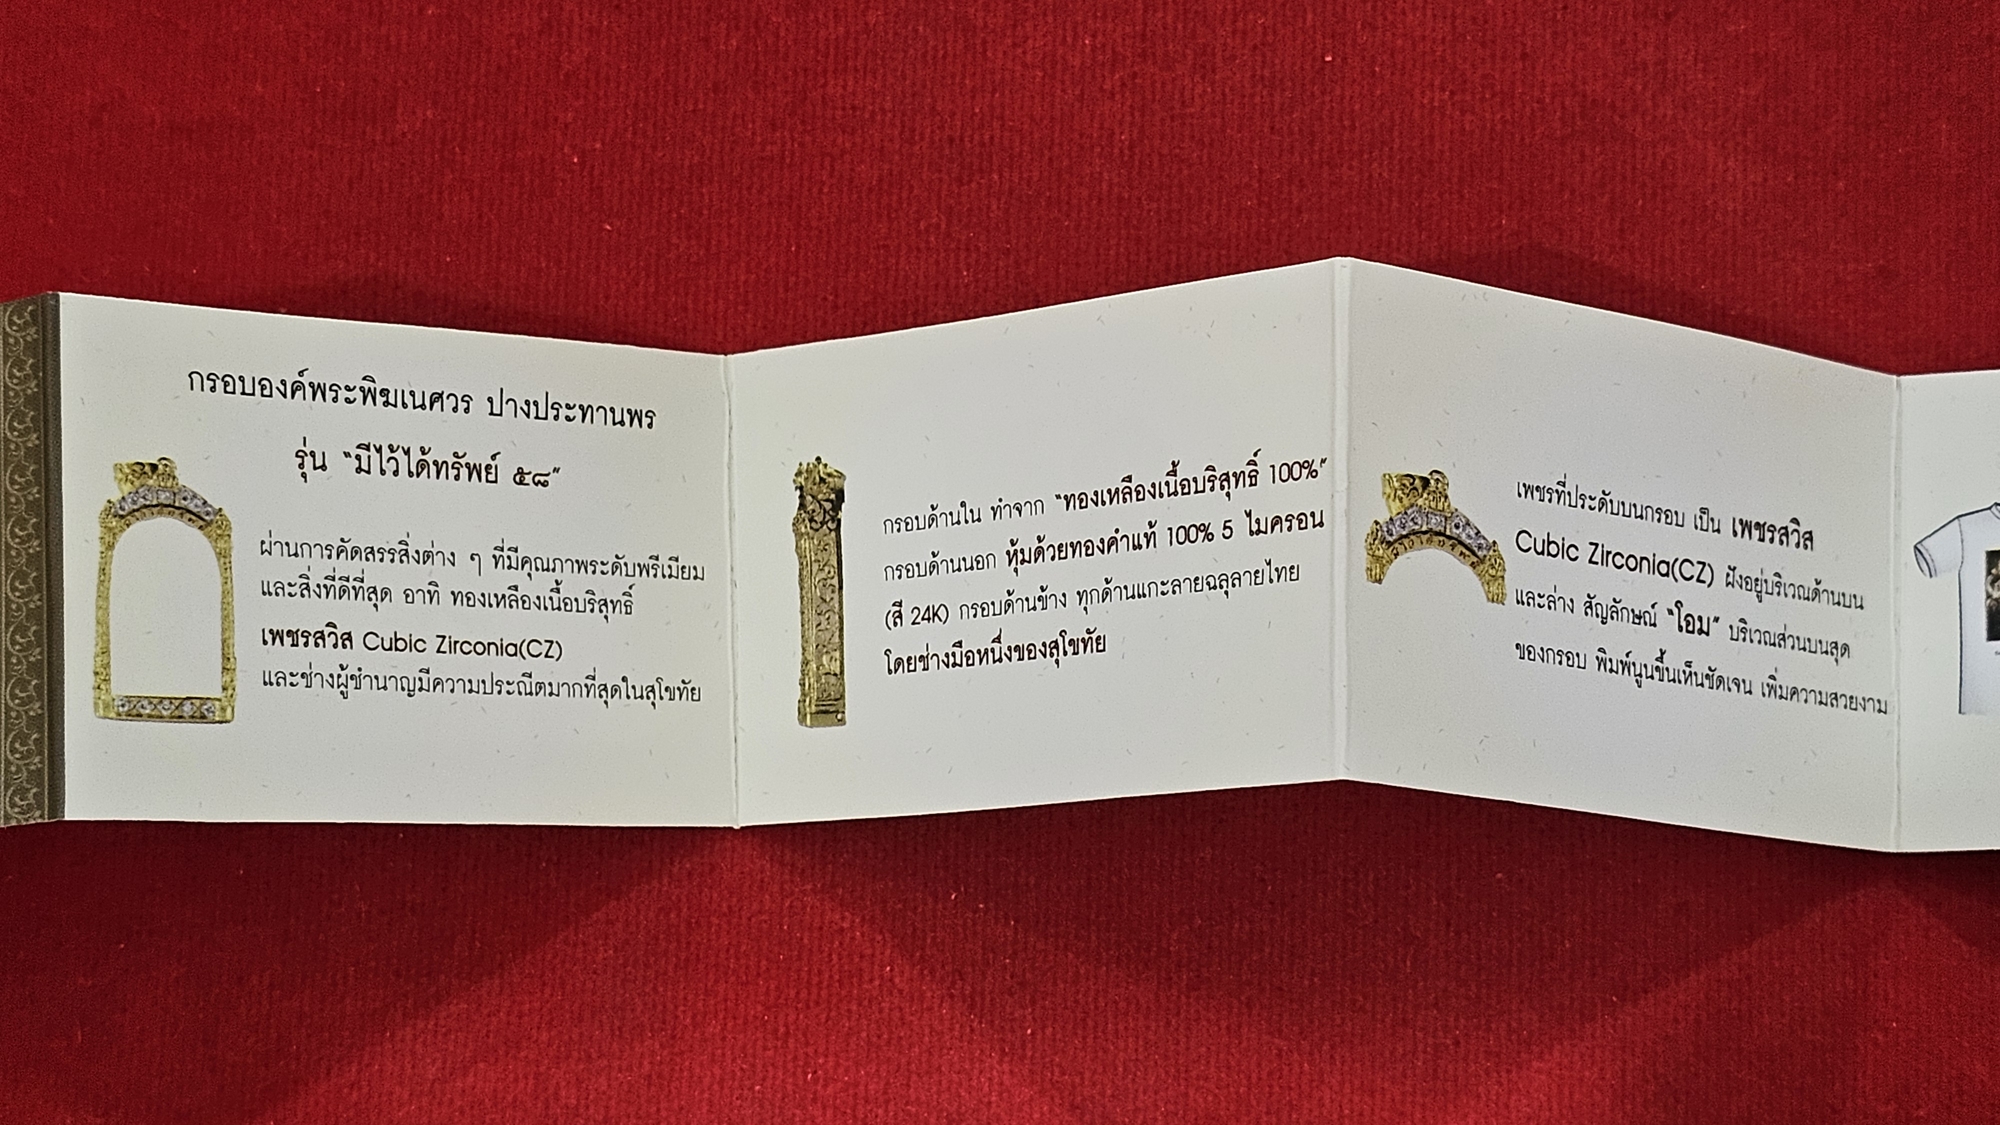 กรอบองค์พระพิฆเนศวร ปางประทานพร
รุ่น "มีไว้ได้ทรัพย์ ๕๘"
ผ่านการคัดสรรสิ่งต่าง ๆ ที่มีคุณภาพระดับพรีเมียม
และสิ่งที่ดีที่สุด อาทิ ทองเหลืองเนื้อบริสุทธิ์
เพชรสวิส Cubic Zirconia(CZ)
และช่างผู้ชำนาญมีความประณีตมากที่สุดในสุโขทัย
กรอบด้านใน ทำจาก "ทองเหลืองเนื้อบริสุทธิ์ 100%"
กรอบด้านนอก หุ้มด้วยทองคำแท้ 100% 5 ไมครอน
(สี 24K) กรอบด้านข้าง ทุกด้านแกะลายฉลุลายไทย
โดยช่างมือหนึ่งของสุโขทัย
เพชรที่ประดับบนกรอบ เป็น เพชรสวิส
Cubic Zirconia(CZ) ฝังอยู่บริเวณด้านบน
และล่าง สัญลักษณ์ "โอม" บริเวณส่วนบนสุด
ของกรอบ พิมพ์นูนขึ้นเห็นชัดเจน เพิ่มความสวยงาม